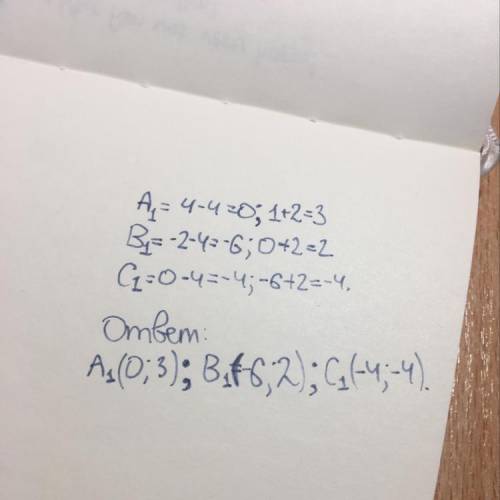 A₁= 4-4=0; 1+2=3
B₁= -2-4=-6; 0+2=2
C₁=0-4=-4; -6+2=-4.
Ответ:
A₁(0;3); B₁(-6;2); C₁(-4;-4).